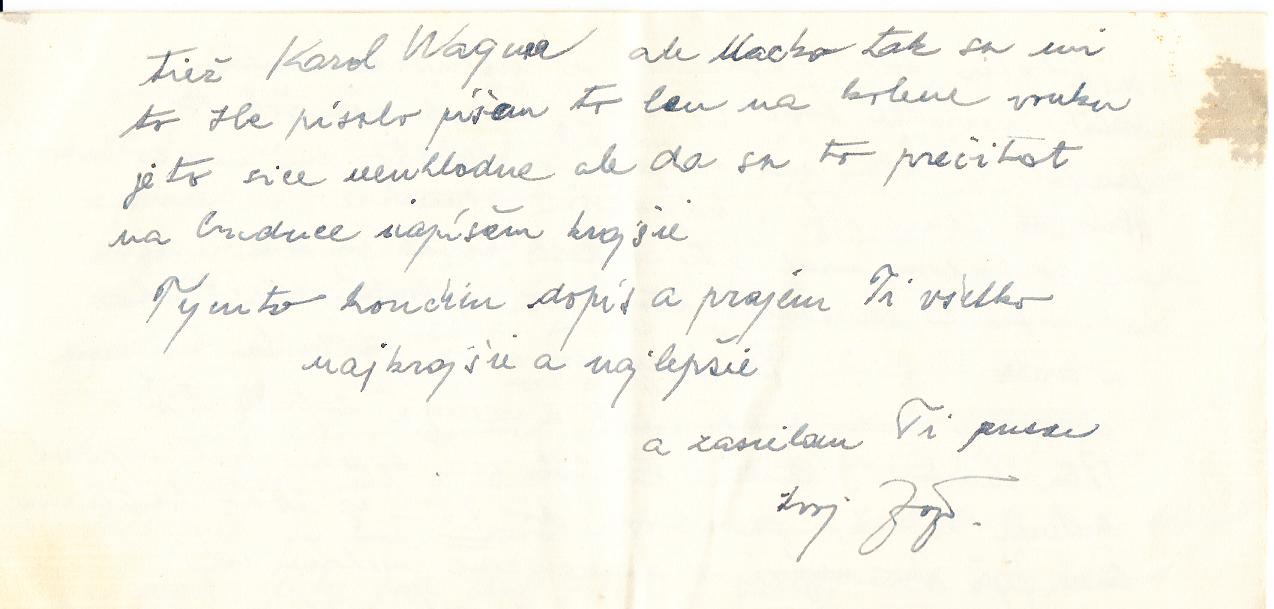 tiež Karol Wagner ale Macko tak sa mi
to zle písalo píšem to len na kolene vonku
je to sice neuhladne ale da sa to prečítat
na buduce napíšem krajšie
Tymto končim dopis a prajem Ti všetko
najkrajšie a najlepšie
a zasielam Ti pusu
tvoj